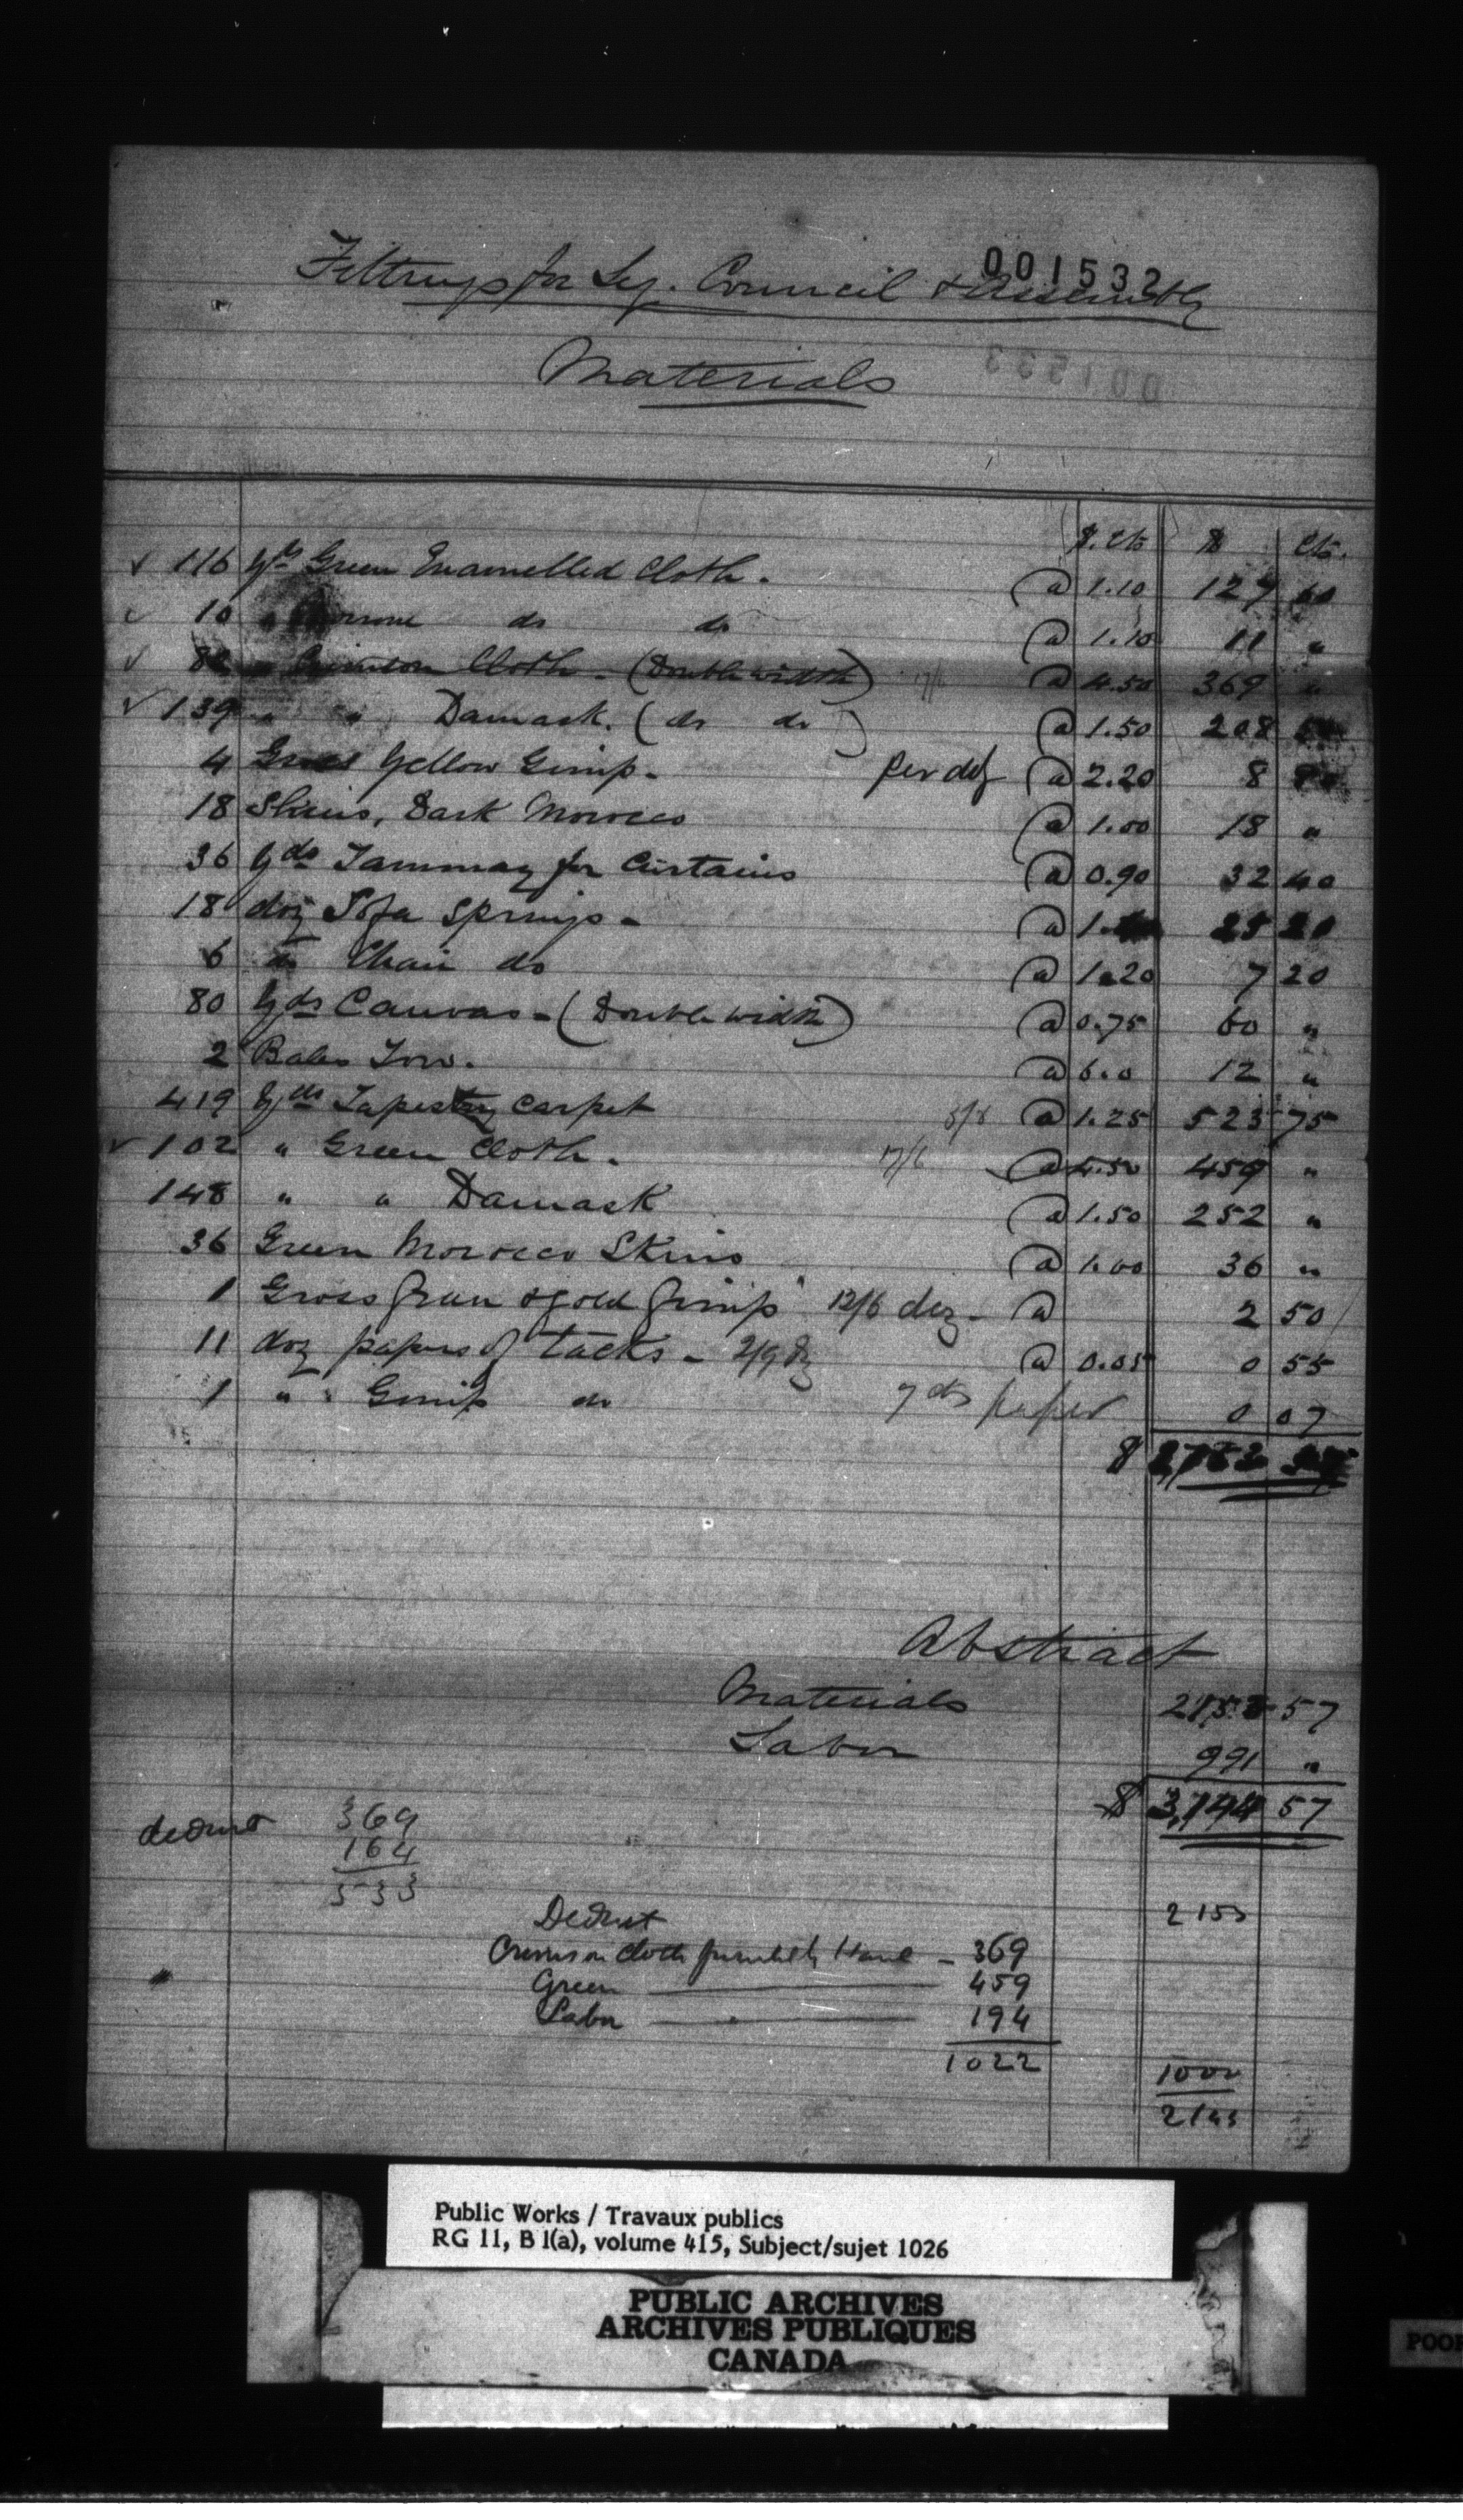 001532
Fittings for Leg. Council & Assembly
Materials
001533
$. Cts $ Cts.
✓ 116 Yds Green Enamelled Cloth. @ 1.10 127 60
✓ 10 " do do @ 1.10 11 "
✓ 82 " Crimson Cloth. (Double width) 17/6 @ 4.50 369 "
✓ 139 " " Damask. (do do) @ 1.50 208 50
4 Gross Yellow Gimp. per doz @ 2.20 8 80
18 Skins, Dark Morocco @ 1.00 18 "
36 Yds Tammay for Curtains @ 0.90 32 40
18 doz Sofa Springs - @ 1. 25 20
6 do Chair do @ 1.20 7 20
80 Yds Canvas - (Double width) @ 0.75 60 "
2 Bales Tow. @ 6.0 12 "
419 Yds Tapestry Carpet @ 1.25 523 75
✓ 102 " Green Cloth. 17/6 @ 4.50 459 "
148 " " Damask @ 1.50 252 "
36 Green Morocco Skins @ 1.00 36 "
1 Gross Green & Gold Gimp 12/6 doz. @ 2 50
11 doz papers of tacks - 2/9 dz @ 0.05 0 55
1 " Gimp do 7 cts paper 0 07
$
Abstract
Materials 2153 57
Labor 991 "
$ 3,144 57
deduct 369
164
533
2153
Deduct
Crimson Cloth - 369
Green 459
Labor " 194
1022